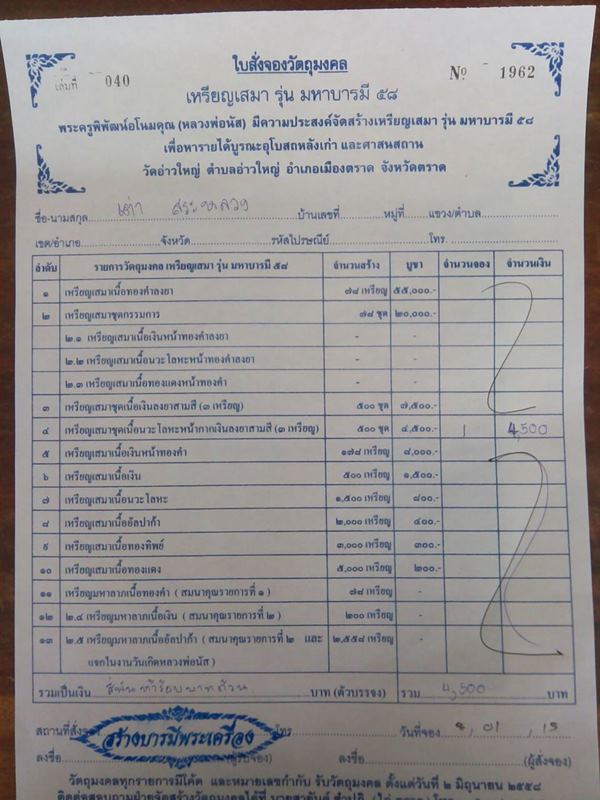 ใบสั่งจองวัตถุมงคล
เล่มที่ 040 No 1962
เหรียญเสมา รุ่น มหาบารมี ๕๘
พระครูพิพัฒน์อโนมคุณ (หลวงพ่อนัส) มีความประสงค์จัดสร้างเหรียญเสมา รุ่น มหาบารมี ๕๘
เพื่อหารายได้บูรณะอุโบสถหลังเก่า และศาสนสถาน
วัดอ่าวใหญ่ ตำบลอ่าวใหญ่ อำเภอเมืองตราด จังหวัดตราด
ชื่อ-นามสกุล เต่า สระหลวง บ้านเลขที่ หมู่ที่ แขวง/ตำบล
เขต/อำเภอ จังหวัด รหัสไปรษณีย์ โทร.
ลำดับ รายการวัตถุมงคล เหรียญเสมา รุ่น มหาบารมี ๕๘ จำนวนสร้าง บูชา จำนวนจอง จำนวนเงิน
๑ เหรียญเสมาเนื้อทองคำลงยา ๗๘ เหรียญ ๕๕,๐๐๐.-
๒ เหรียญเสมาชุดกรรมการ ๗๘ ชุด ๒๐,๐๐๐.-
๒.๑ เหรียญเสมาเนื้อเงินหน้าทองคำลงยา - -
๒.๒ เหรียญเสมาเนื้อนวะโลหะหน้าทองคำลงยา - -
๒.๓ เหรียญเสมาเนื้อทองแดงหน้าทองคำ - -
๓ เหรียญเสมาชุดเนื้อเงินลงยาสามสี (๓ เหรียญ) ๕๐๐ ชุด ๗,๕๐๐.-
๔ เหรียญเสมาชุดเนื้อนวะโลหะหน้ากากเงินลงยาสามสี (๓ เหรียญ) ๕๐๐ ชุด ๔,๕๐๐.- 1 4,500
๕ เหรียญเสมาเนื้อเงินหน้าทองคำ ๑๗๘ เหรียญ ๘,๐๐๐.-
๖ เหรียญเสมาเนื้อเงิน ๕๐๐ เหรียญ ๑,๕๐๐.-
๗ เหรียญเสมาเนื้อนวะโลหะ ๑,๕๐๐ เหรียญ ๘๐๐.-
๘ เหรียญเสมาเนื้ออัลปาก้า ๒,๐๐๐ เหรียญ ๔๐๐.-
๙ เหรียญเสมาเนื้อทองทิพย์ ๓,๐๐๐ เหรียญ ๓๐๐.-
๑๐ เหรียญเสมาเนื้อทองแดง ๕,๐๐๐ เหรียญ ๒๐๐.-
๑๑ เหรียญมหาลาภเนื้อทองคำ ( สมนาคุณรายการที่ ๑ ) ๗๘ เหรียญ -
๑๒ ๒.๔ เหรียญมหาลาภเนื้อเงิน ( สมนาคุณรายการที่ ๒ ) ๒๐๐ เหรียญ -
๑๓ ๒.๕ เหรียญมหาลาภเนื้ออัลปาก้า ( สมนาคุณรายการที่ ๒ และ ๒,๕๕๘ เหรียญ -
แจกในงานวันเกิดหลวงพ่อนัส )
รวมเป็นเงิน สี่พันห้าร้อยบาทถ้วน บาท (ตัวบรรจง) รวม 4,500 บาท
สถานที่สั่ง โทร วันที่จอง 01, 15
สร้างบารมีพระเครื่อง
ลงชื่อ (ผู้รับจอง) ลงชื่อ (ผู้สั่งจอง)
วัตถุมงคลทุกรายการมีโค้ด และหมายเลขกำกับ รับวัตถุมงคล ตั้งแต่วันที่ ๒ มิถุนายน ๒๕๕๘